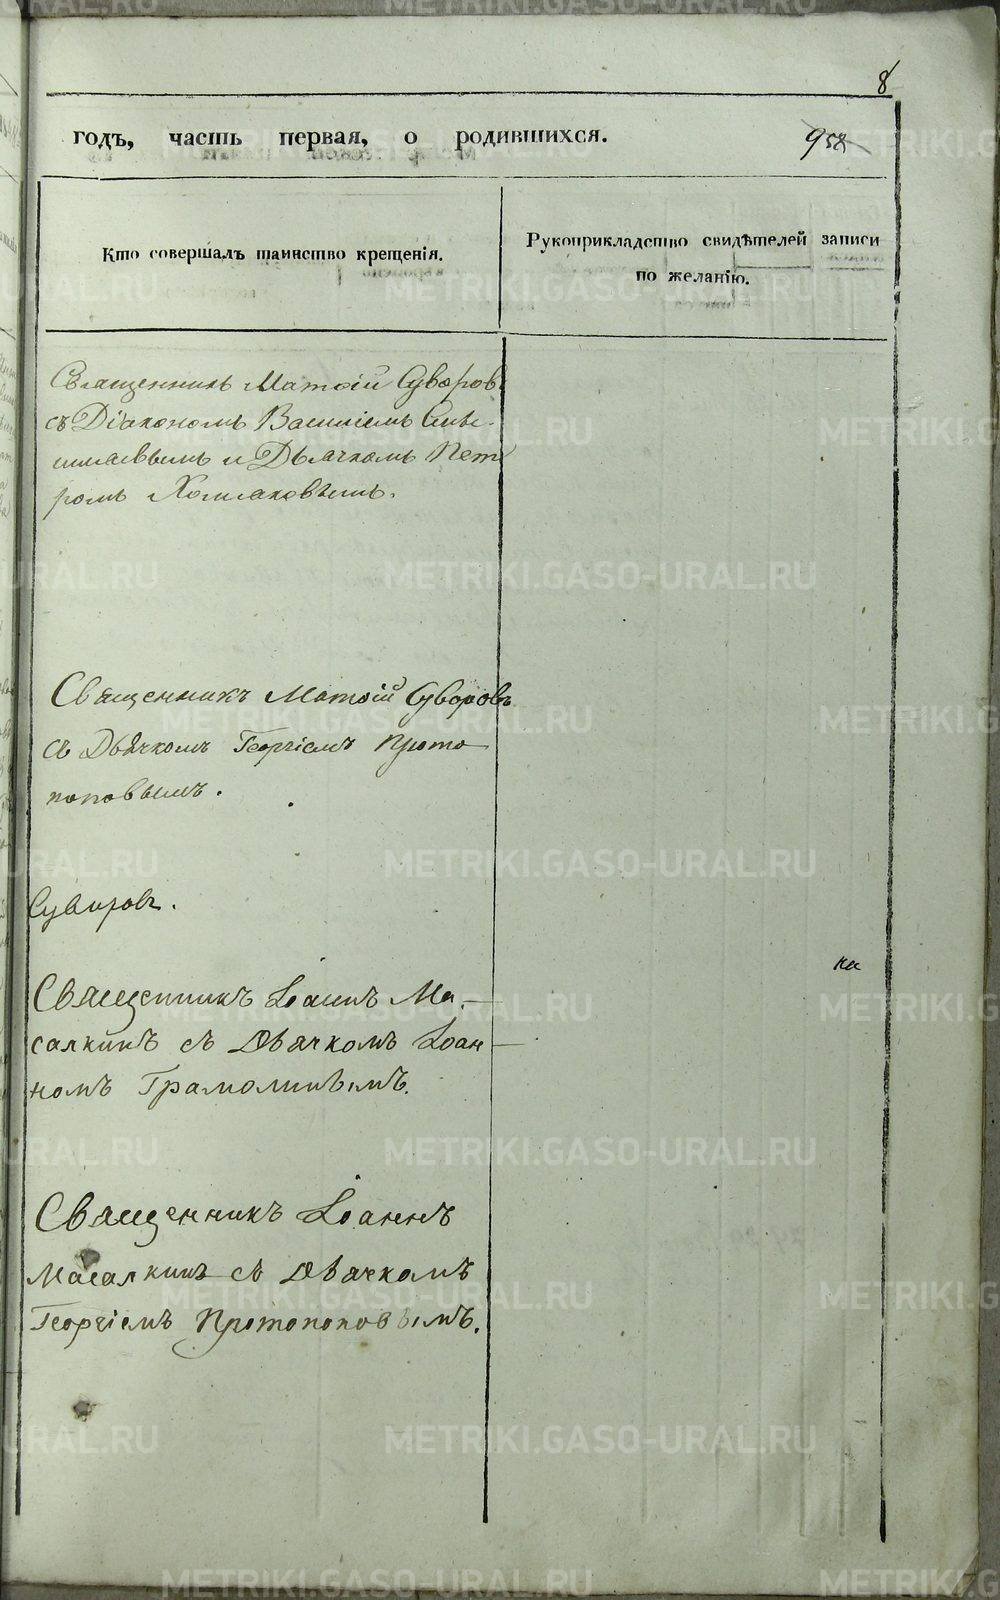 8
годъ, часть первая, о родившихся.
958
Кто совершалъ таинство крещенія.
Рукоприкладство свидѣтелей записи
по желанію.
Священникъ Матѳій Суворовъ
съ Діакономъ Василіемъ
и Дьячкомъ Пет
ромъ Хомяковымъ.
Священникъ Матѳій Суворовъ
съ Дьячкомъ Георгіемъ Прото
поповымъ.
Суворовъ.
Священникъ Іоаннъ Ма-
салкинъ съ Дьячкомъ Іоан
номъ Грамолинымъ.
на
Священникъ Іоаннъ
Масалкинъ съ Дьячкомъ
Георгіемъ Протопоповымъ.
METRIKI.GASO-URAL.RU